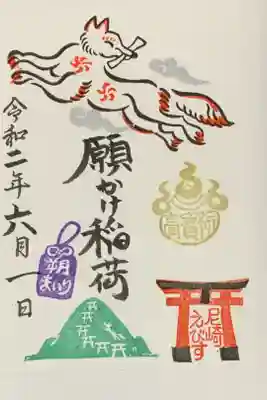 願かけ稲荷
令和二年六月一日
朔
まいり
尼崎
えびす